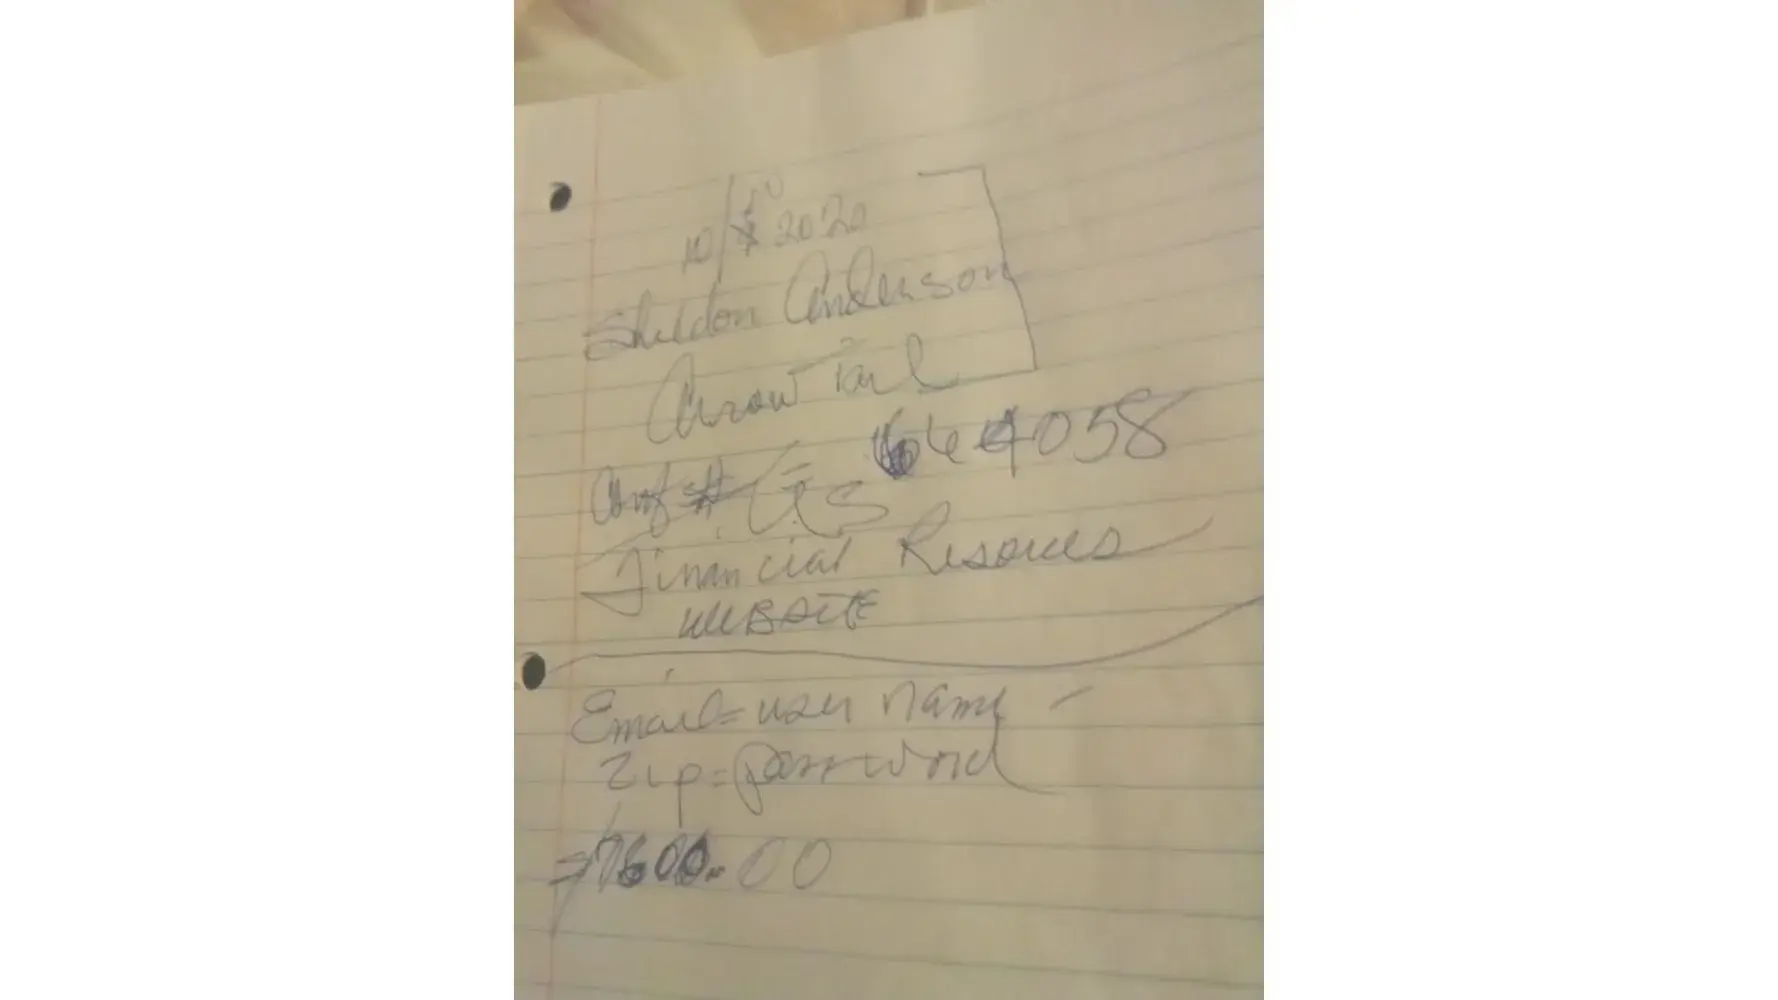 10/ 2020
Sheldon Anderson
Arrow Tail
Conf # = 644058
Financial Resources
WEBSITE
Email = user name -
Zip = password
7600.00